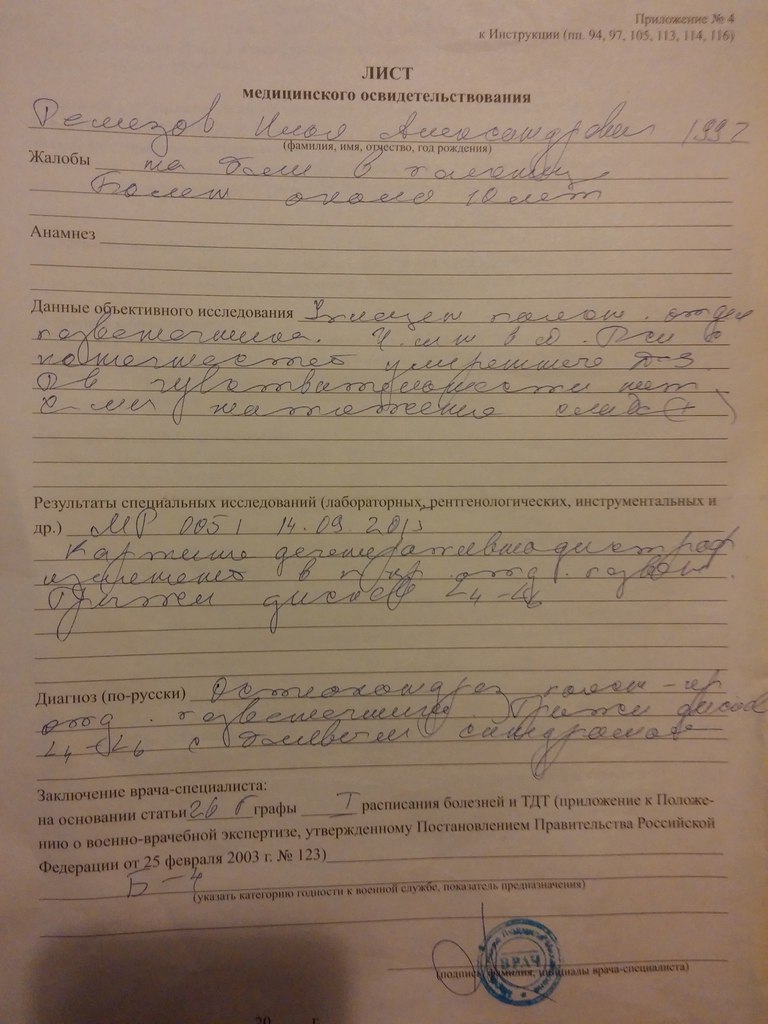 Приложение № 4
к Инструкции (пп. 94, 97, 105, 113, 114, 116)
ЛИСТ
медицинского освидетельствования
Ремезов Илья Александрович 1992
(фамилия, имя, отчество, год рождения)
Жалобы на боли в пояснице
Болен около 10 лет
Анамнез
Данные объективного исследования полож. отдел
позвоночника.
конечностей умеренные D=S.
Р-в чувствительности нет.
С-мы натяжения слабо (+)
Результаты специальных исследований (лабораторных, рентгенологических, инструментальных и
др.) МР 0051 14.09.2013
Картина дегенеративно дистроф
изменений в п/кр. отд. позвон.
Грыжи дисков L4-L6
Диагноз (по-русски) Остеохондроз пояснич-кр
отд. позвоночника. Грыжи дисков
L4-L6 с болевым синдромом
Заключение врача-специалиста:
на основании статьи 26 г графы I расписания болезней и ТДТ (приложение к Положе-
нию о военно-врачебной экспертизе, утвержденному Постановлением Правительства Российской
Федерации от 25 февраля 2003 г. № 123)
Б-4
(указать категорию годности к военной службе, показатель предназначения)
ВРАЧ
(подпись, фамилия, инициалы врача-специалиста)
20 г.